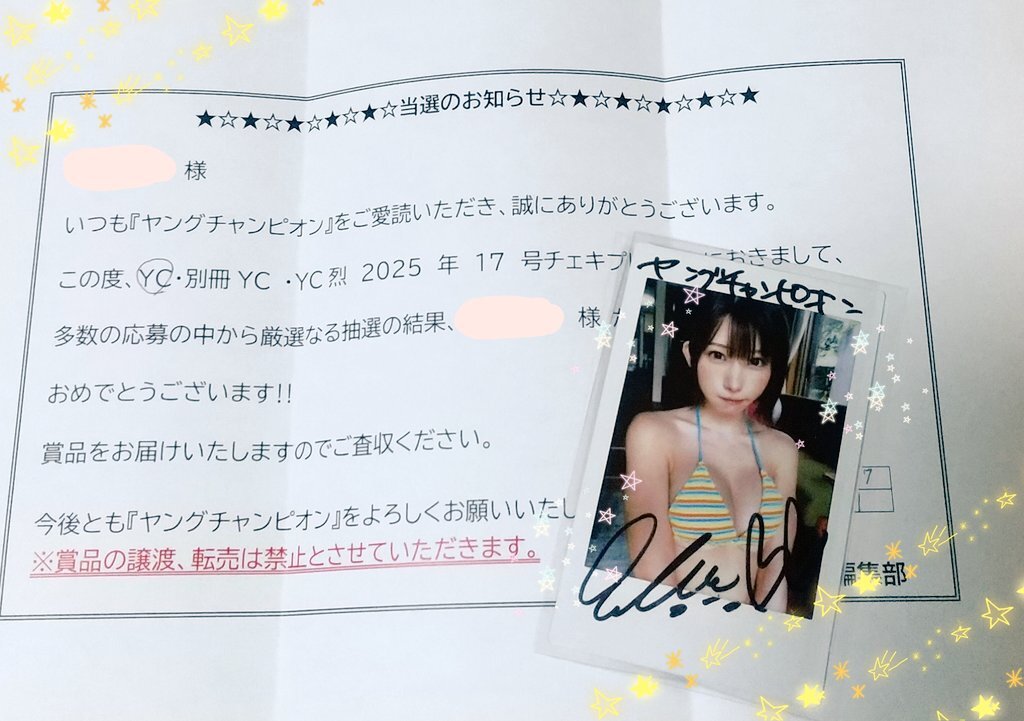 ★☆★☆★☆★☆★☆当選のお知らせ☆★☆★☆★☆★☆★
様
いつも『ヤングチャンピオン』をご愛読いただき、誠にありがとうございます。
この度、YC・別冊YC・YC烈 2025 年 17 号チェキプレ におきまして、
多数の応募の中から厳選なる抽選の結果、 様
おめでとうございます!!
賞品をお届けいたしますのでご査収ください。
今後とも『ヤングチャンピオン』をよろしくお願いいたし
※賞品の譲渡、転売は禁止とさせていただきます。
編集部
ヤングチャンピオン
7